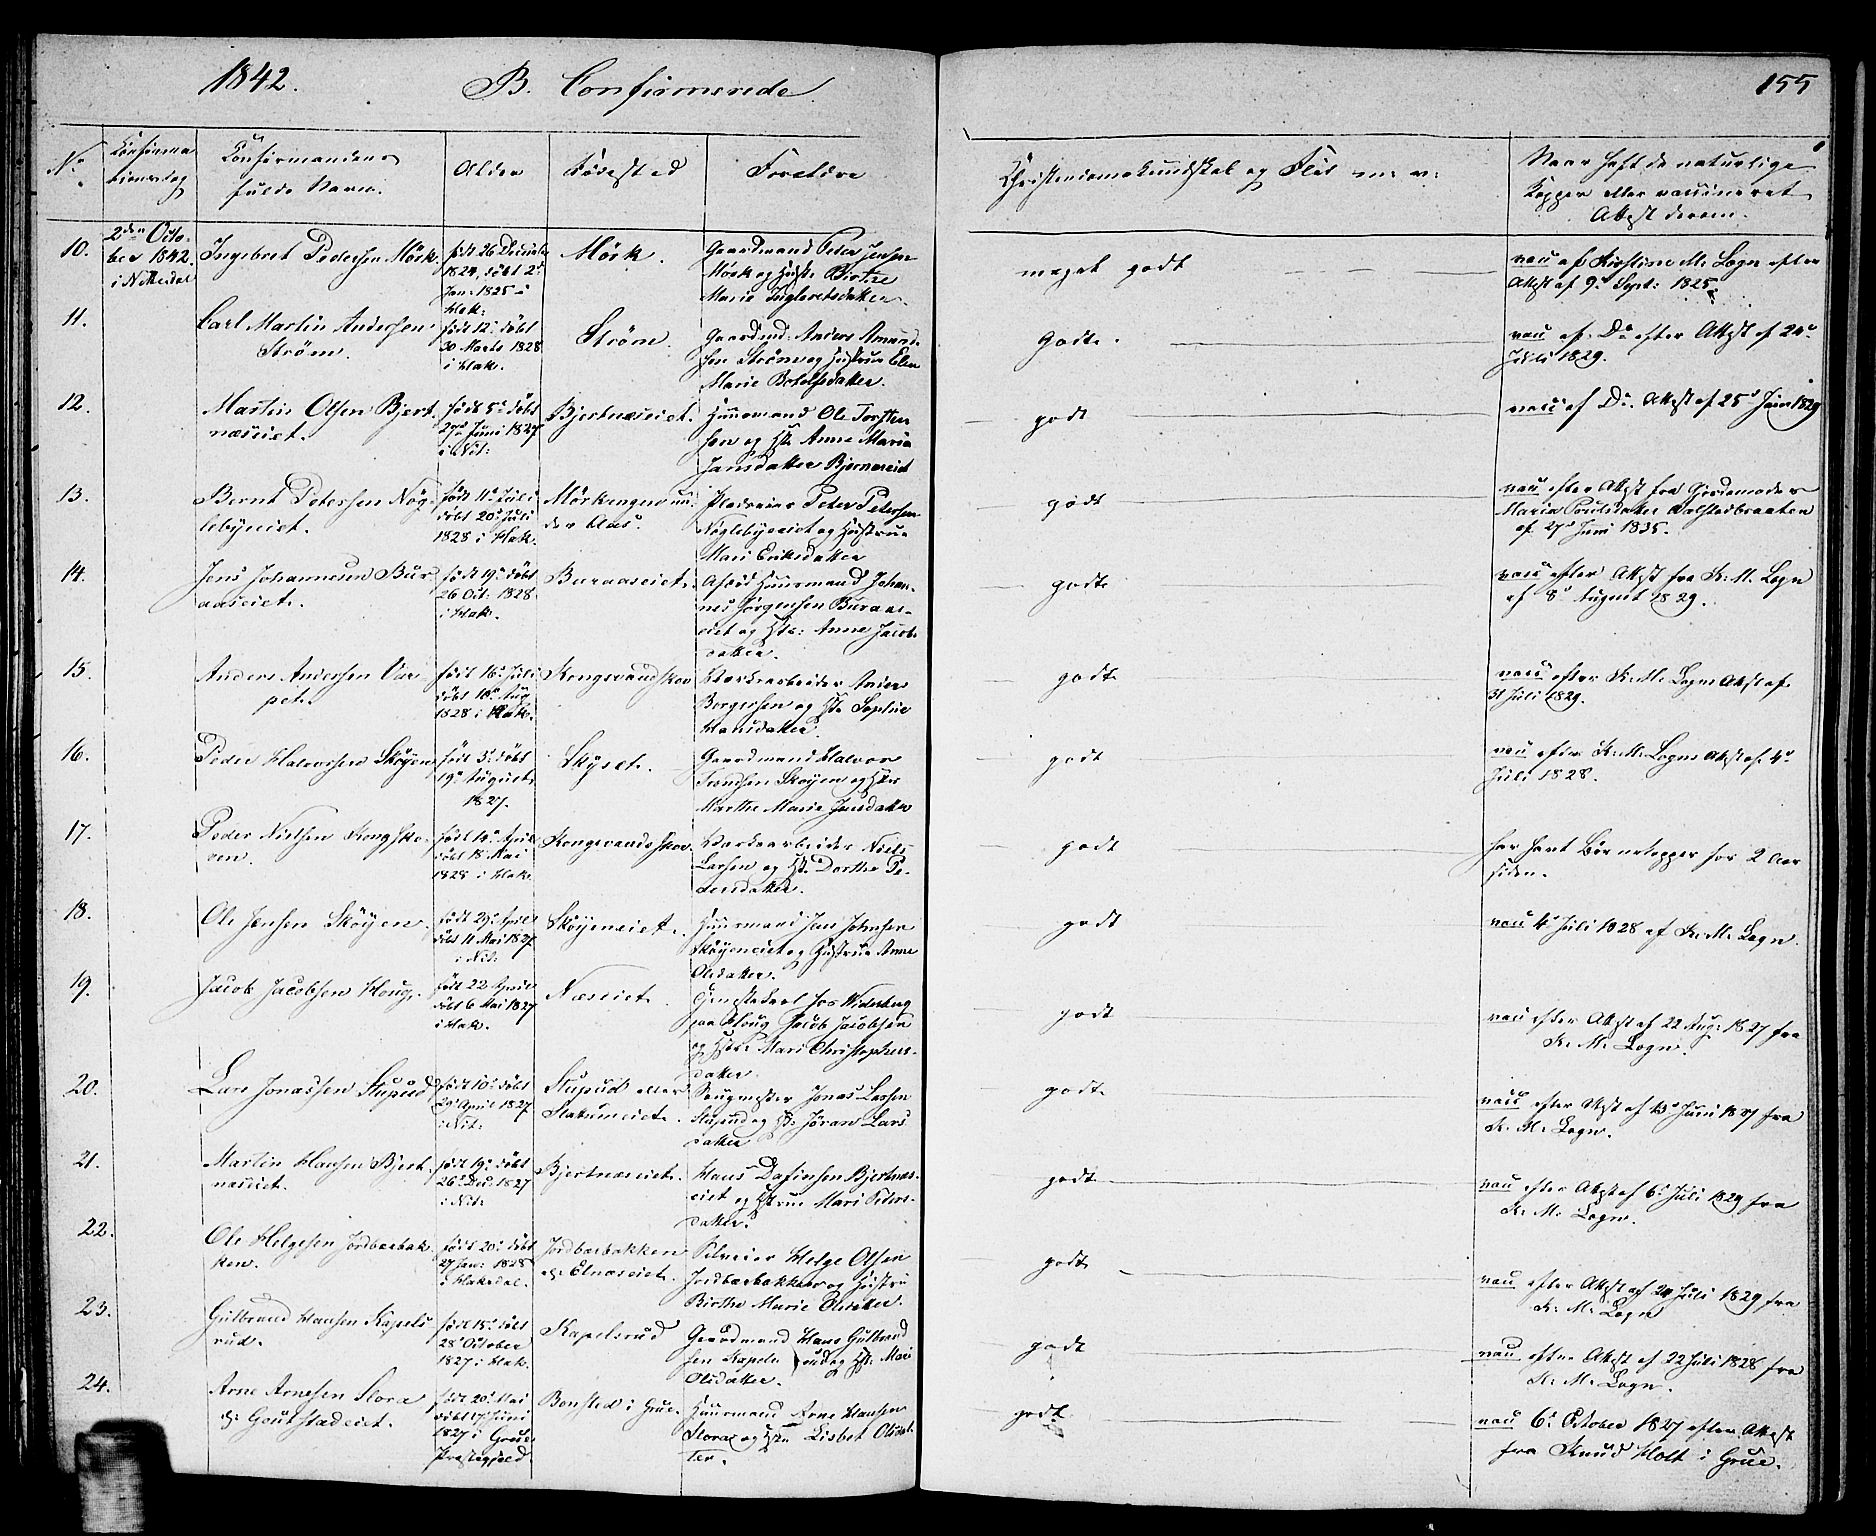 1842. B. Confirmerede 155
No. Confirma
tionsdag
Confirmandens
fulde Navn.
Alder
Fødested
Forældre
Christendomskundskab og Flid m: v:
Naar haft de naturlige
Kopper eller vaccineret
Attest derom.
10. 2den Octo-
ber 1842.
i Nittedal
Ingebret Pedersen Mörk.
født 26 Decemb
1824, döbt 2d
Jan: 1825 i
Hak:
Mörk.
Gaardmand Peder Jensen
Mörk og Hustr Birthe
Marie Ingebretsdatter.
meget godt
vacc af Kirstine M. Logn efter
Attest af 9d Sept: 1825.
11. Carl Martin Andersen
Ström.
født 12d döbt
30 Marts 1828
i Hak.
Ström.
Gaardmd: Anders Amund-
sen Ström og Hustrue Elen
Marie Botolfsdatter.
Godt.
vacc af Do efter Attest af 24d
Juli 1829.
12. Martin Olsen Bjert-
næseiet.
født 5d döbt
27d Juni 1827
i Nit:
Bjertnæseiet.
Huusmand Ole Torsten-
sen og Hst: Anne Maria
Jansdatter Bjernæseiet
godt
vacc af Do. Attest af 25d Juni 1829
13. Bernt Petersen Nög-
lebyeiet.
født 11d Juli
döbt 20d Juli
1828 i Hak.
Mörkengne un-
der Aas.
Pladseier Peter Petersen
Nöglebyeeiet og Hustrue
Mari Eriksdatter
godt
vacc efter Attest fra Gjordemoder
Maria Poulsdatter Dalstadbraaten
af 27d Juni 1835.
14. Jens Johannesen Bur-
aaseiet.
født 19d döbt
26 Oct. 1828
i Hak.
Buraaseiet.
Afdöd Huusmand Johan-
nes Jörgensen Buraas-
eiet og Hst: Anne Jacobs-
datter.
godt
vacc efter Attest fra K: M. Logn
af 8d August 1829.
15. Anders Andersen Var-
pet.
født 16d Juli
döbt 10d Aug
1828 i Hak.
Kongsvandskov
Værksarbeider Anders
Borgersen og Hst Sophie
Hansdatter.
godt
vacc efter K: M: Logns Attest af
31 Juli 1829.
16. Peder Halvorsen Sköyen
født 3d döbt
19d August
1827.
Skyset.
Gaardmand Halvor
Svendsen Sköyen og Hstr
Marthe Marie Jonsdatter
godt
vacc efter K: M: Logns Attest af 4d
Juli 1828.
17. Peder Nielsen Kongsko-
ven.
født 14d April
döbt 18 Mai
1828 i Hak
Kongsvandsskov.
Værksarbeider Niels
Larsen og Hst. Dorthe Pe-
dersdatter.
godt
har havt Börnekopper for 2 Aar
siden.
18. Ole Jensen Sköyen.
født 29d April
döbt 11 Mai 1827
i Nit:
Sköyeneiet.
Huusmand Jens Johnsen
Sköyeneiet og Hustrue Anne
Olsdatter.
godt
vacc 4d Juli 1828 af K: M: Logn.
19. Jacob Jacobsen Houg.
født 22 April
döbt 6 Mai 1827
i Hak.
Næseiet.
Tjenestekarl hos Widerberg
paa Houg Jacob Jacobsen
og Hst: Mari Christophers-
datter.
godt
vacc efter Attest af 22 Aug: 1827 fra
K: M: Logn.
20. Lars Jonassen Stupud
født 10d döbt
29 April 1827
i Nit:
Stupud eller
Slatumeiet.
Saugmester Jonas Larsen
Stupud og H: Jöran Lars
datter
godt
vacc efter Attest af 13d Juni 1827 fra
K: M: Logn.
21. Martin Hansen Bjert-
næseiet.
født 19d döbt
26d Dec: 1827
i Nit:
Bjertnæseiet.
Hans Dafinsen Bjertnæs-
eiet og Hstrue Mari Peders-
datter.
godt
vacc efter Attest af 6d Juli 1829 fra
K: M: Logn.
22. Ole Helgesen Jordbærbak-
ken.
født 20d döbt
27 Jan: 1828
i Hakedal.
Jordbærbakken
Elnæseiet.
Selveier Helge Olsen
Jordbærbakken og Hustru
Birthe Marie Olsdatter.
godt
vacc efter Attest af 24 Juli 1829 fra
K: M: Logn
23. Gulbrand Hansen Kapels-
rud.
født 15d döbt
28d October
1827 i Hak.
Kapelsrud
Gaardmand Hans Gulbrand
sen Kapelsrud og Hst: Mari
Olsdatter.
godt
vacc efter Attest af 22 Juli 1828 fra
K: M: Logn.
24. Arne Arnesen Stora
Goutstadeiet.
født 20d Mai
döbt 17 Juni
1827 i Grue
Præstegjeld.
Bonsted i Grue.
Huusmand Arne Hansen
Stora og Hst Lisbet Olsdat-
ter.
godt
vacc 6d October 1827 efter Attest
fra Knud Holt i Grue.